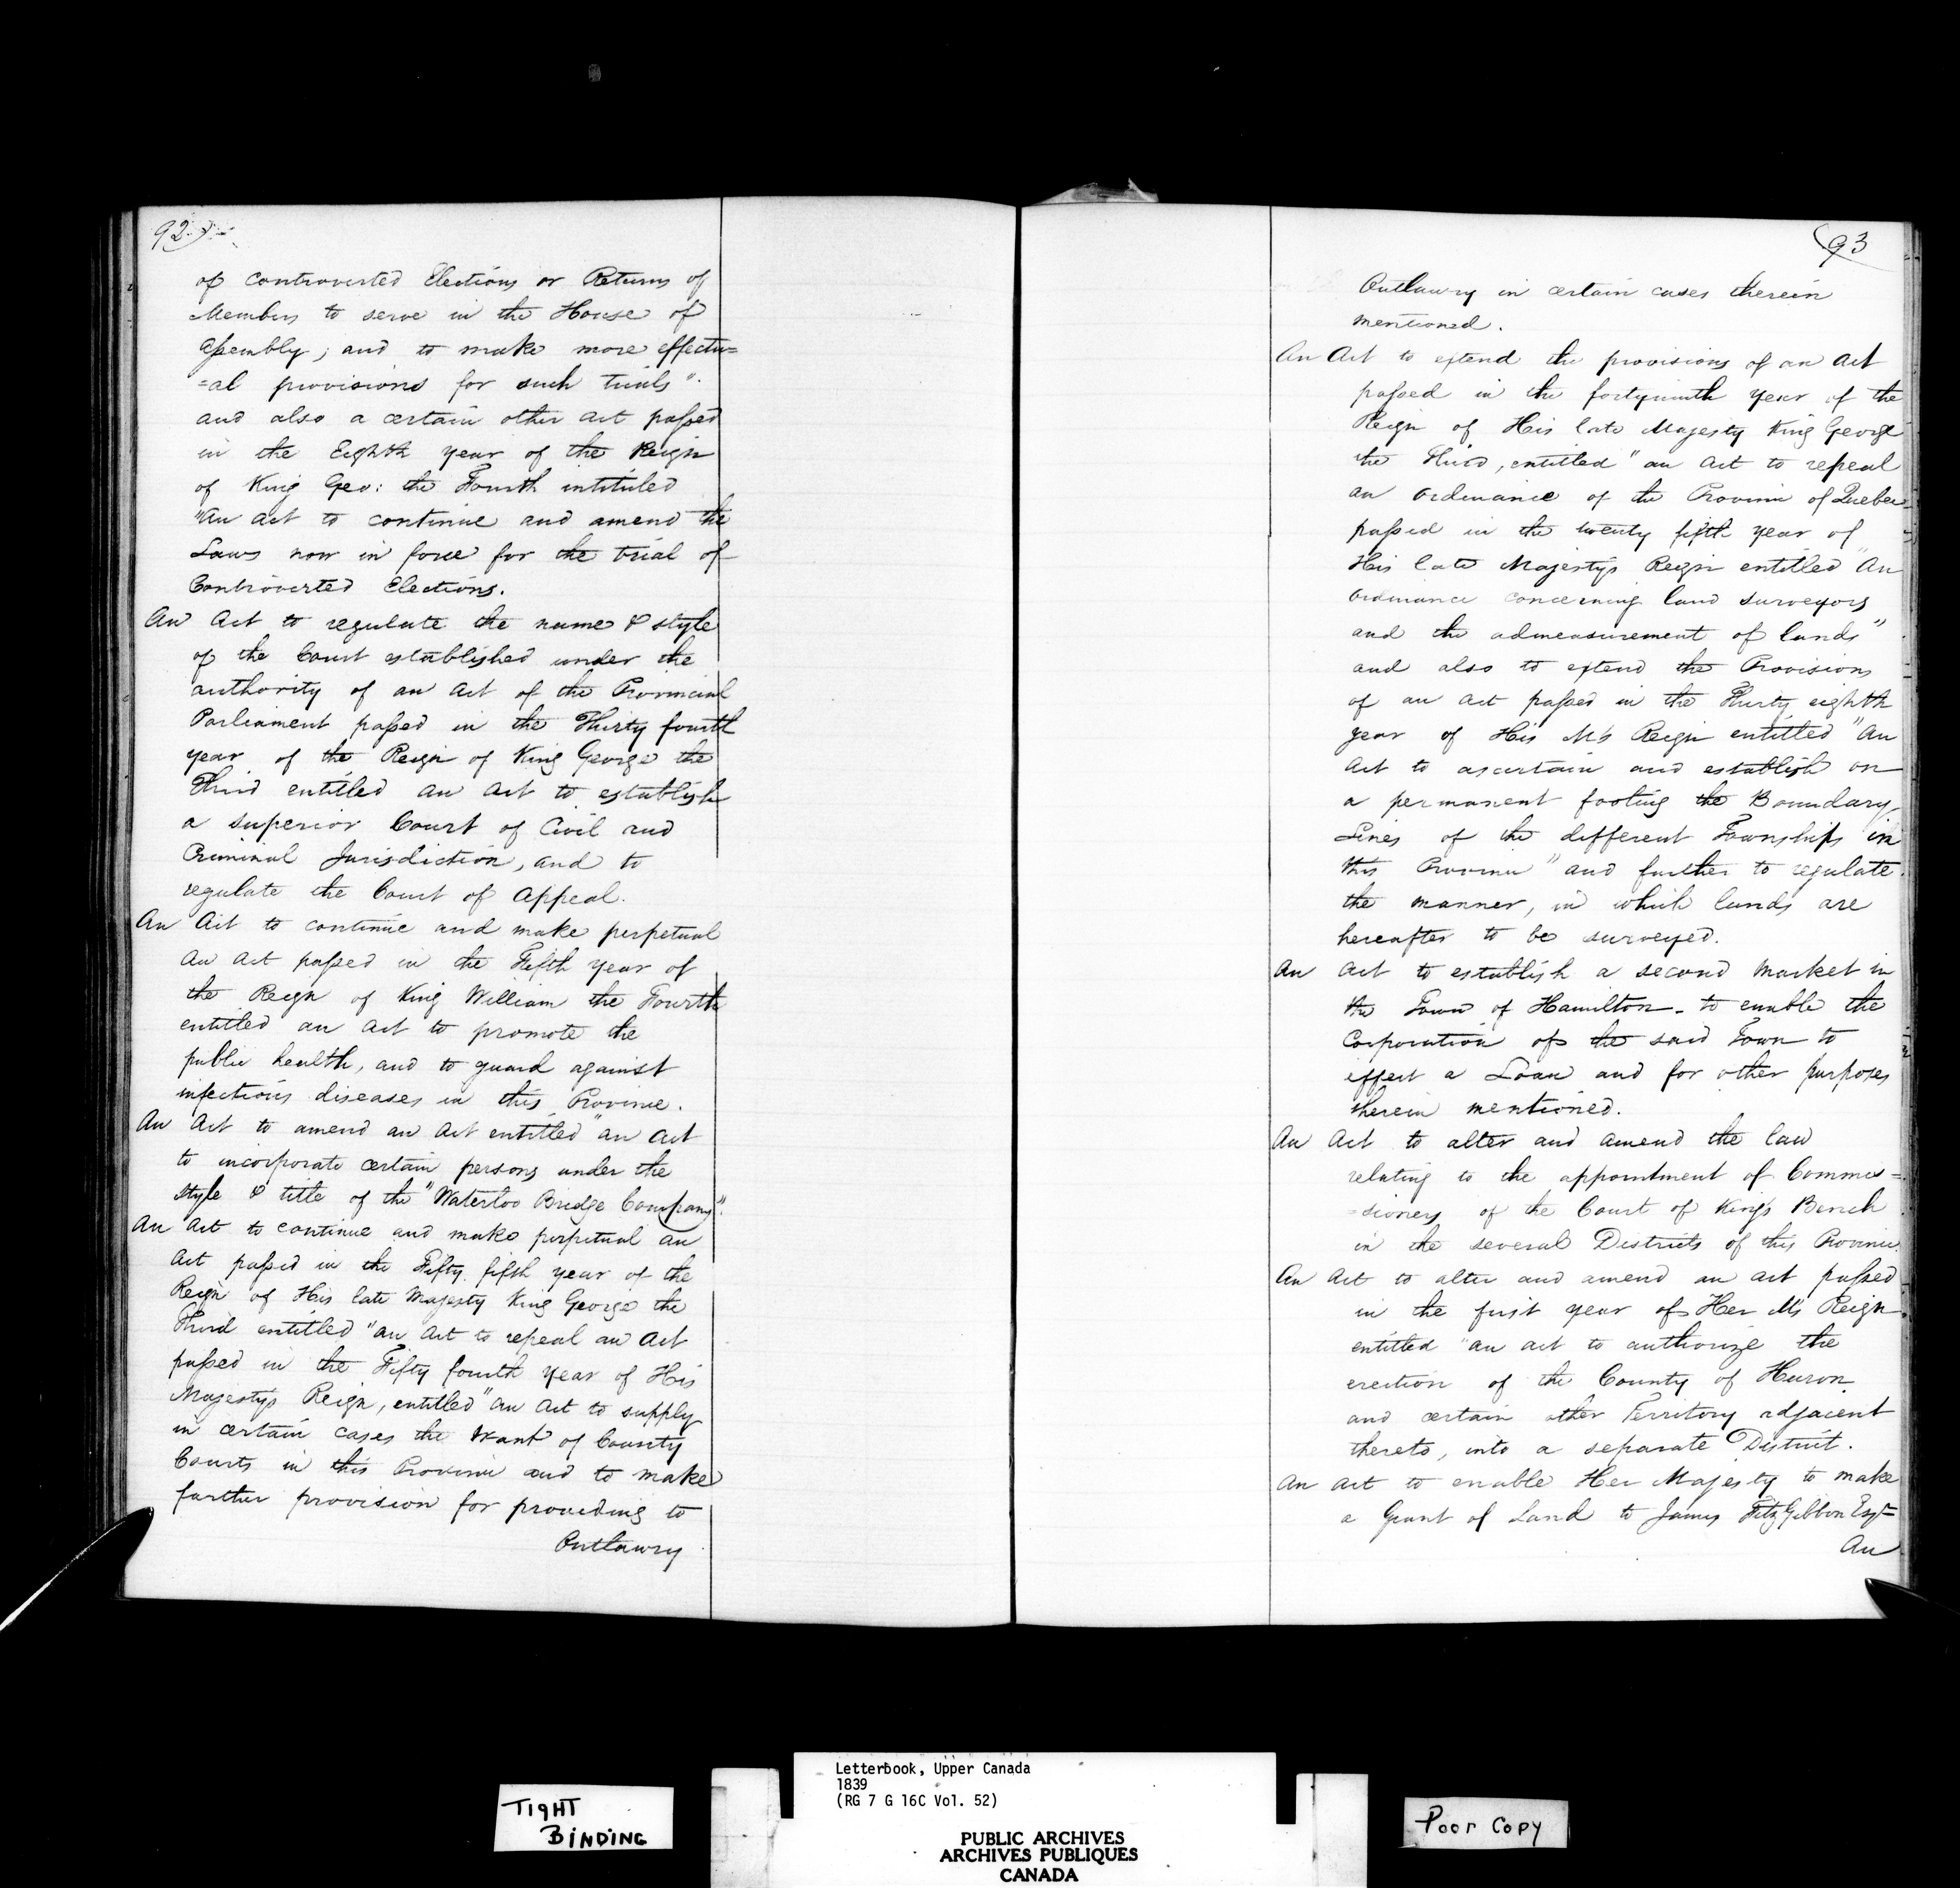 92
of controverted Elections or Returns of
Members to serve in the House of
Assembly; and to make more effectu=
=al provisions for such trials".
and also a certain other act passed
in the Eighth year of the Reign
of King Geo: the Fourth intituled
"An act to continue and amend the
Laws now in force for the trial of
Controverted Elections.
An Act to regulate the name & style
of the Court established under the
authority of an act of the Provincial
Parliament passed in the Thirty fourth
year of the Reign of King George the
Third entitled an act to establish
a superior Court of Civil and
Criminal Jurisdiction, and to
regulate the Court of Appeal.
An Act to continue and make perpetual
an act passed in the Fifth year of
the Reign of King William the Fourth
entitled an act to promote the
public health, and to guard against
infectious diseases in this Province.
An Act to amend an act entitled "an act
to incorporate certain persons under the
style & title of the "Waterloo Bridge Company".
An Act to continue and make perpetual an
act passed in the Fifty fifth year of the
Reign of His late Majesty King George the
Third entitled "an act to repeal an act
passed in the Fifty fourth year of His
Majesty's Reign, entitled "an act to supply
in certain cases the want of County
Courts in this Province and to make
further provision for proceeding to
Outlawry
93
Outlawry in certain cases therein
mentioned.
An Act to extend the provisions of an act
passed in the fortyninth year of the
Reign of His late Majesty King George
the Third, entitled "an act to repeal
an ordinance of the Province of Quebec
passed in the twenty fifth year of
His late Majesty's Reign entitled "An
ordinance concerning land surveyors
and the admeasurement of lands"
and also to extend the Provisions
of an act passed in the Thirty eighth
year of His M's Reign entitled "An
act to ascertain and establish on
a permanent footing the Boundary
Lines of the different Townships in
this Province" and further to regulate
the manner, in which lands are
hereafter to be surveyed.
An Act to establish a second Market in
the Town of Hamilton - to enable the
Corporation of the said Town to
effect a Loan and for other purposes
therein mentioned.
An Act to alter and amend the law
relating to the appointment of Commis=
=sioners of the Court of King's Bench
in the several Districts of this Province.
An Act to alter and amend an act passed
in the first year of Her M's Reign
entitled "an act to authorize the
erection of the County of Huron
and certain other Territory adjacent
thereto, into a separate District.
An act to enable Her Majesty to make
a Grant of Land to James FitzGibbon Esqr
An
TIGHT
BINDING
Letterbook, Upper Canada
1839
(RG 7 G 16C Vol. 52)
PUBLIC ARCHIVES
ARCHIVES PUBLIQUES
CANADA
Poor Copy